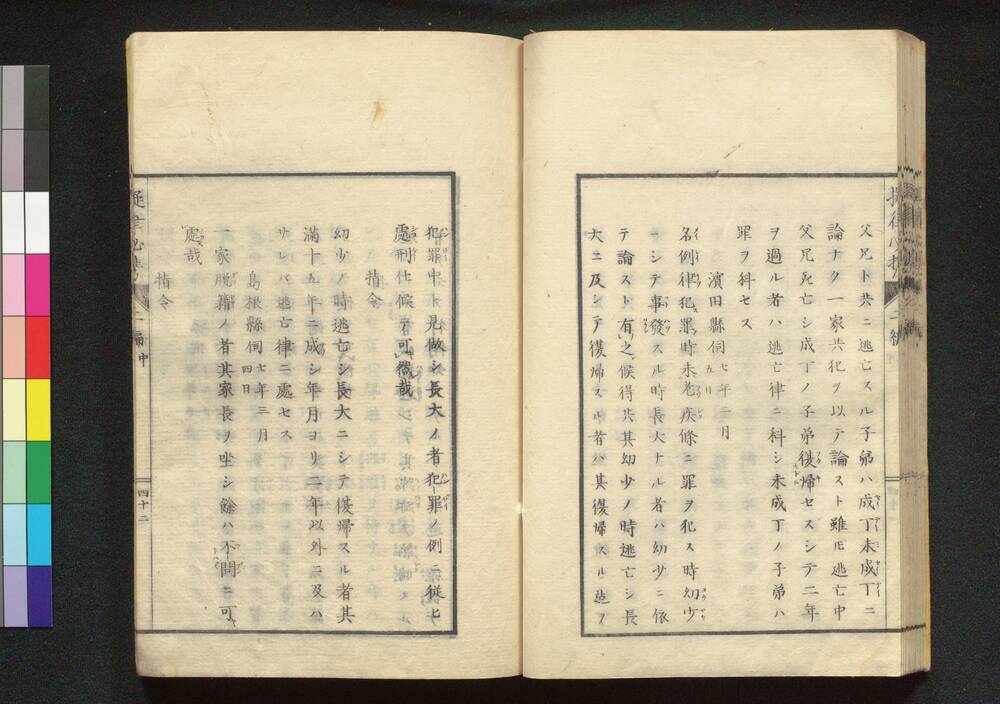 父兄ト共ニ逃亡スル子弟ハ成丁未成丁ニ
論ナク一家共犯ヲ以テ論スト雖モ逃亡中
父兄死亡シ成丁ノ子弟復帰セスシテ二年
ヲ過ル者ハ逃亡律ニ科シ未成丁ノ子弟ハ
罪ヲ科セス
濱田縣伺 七年二月五日
名例律犯罪時未老疾條ニ罪ヲ犯ス時幼少
ニシテ事發スル時長大ナル者ハ幼少ニ依
テ論スト有之候得共其幼少ノ時逃亡シ長
大ニ及シテ復帰スル者ハ其復帰スル迄ヲ
犯罪中ト見做シ長大ノ者犯罪ノ例ニ従ヒ
處刑仕候テ可然哉
指令
幼少ノ時逃亡シ長大ニシテ復帰スル者其
滿十五年ニ成シ年月ヨリ二年以外ニ及ハ
サレバ逃亡律ニ處セス
島根縣伺 七年三月四日
一家脱籍ノ者其家長ヲ坐シ餘ハ不問ニ可
處哉
指令
二編中
四十二